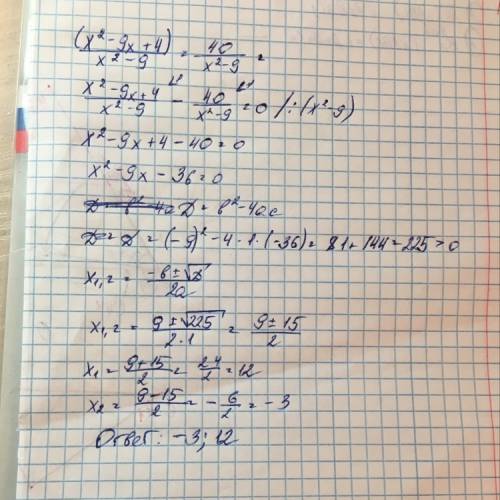 (x² - 9x + 4) / (x² - 9) = 40 / (x² - 9) =
(x² - 9x + 4) / (x² - 9) - 40 / (x² - 9) = 0 /: (x² - 9)
x² - 9x + 4 - 40 = 0
x² - 9x - 36 = 0
D = b² - 4ac
D = (-9)² - 4 · 1 · (-36) = 81 + 144 = 225 > 0
x₁,₂ = (-b ± √D) / 2a
x₁,₂ = (9 ± √225) / (2 · 1) = (9 ± 15) / 2
x₁ = (9 + 15) / 2 = 24 / 2 = 12
x₂ = (9 - 15) / 2 = - 6 / 2 = - 3
Ответ: -3; 12